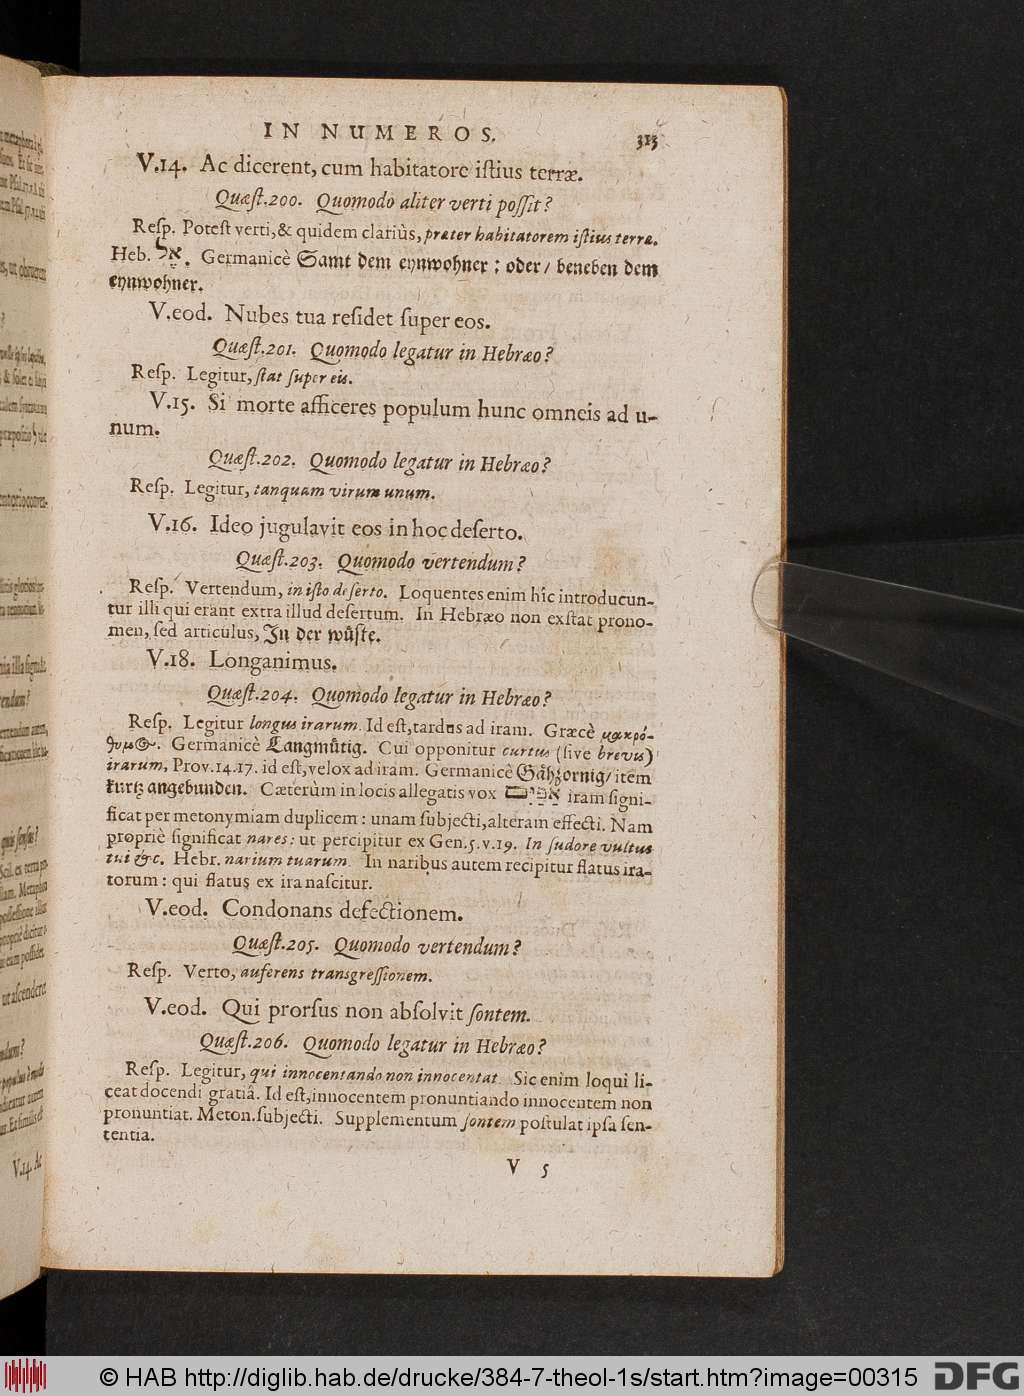 IN NUMEROS. 313
V.14. Ac dicerent, cum habitatore iſtius terræ.
Quæſt.200. Quomodo aliter verti poſſit?
Reſp. Poteſt verti, & quidem clariùs, præter habitatorem iſtius terræ.
Heb. אֶל. Germanicè Samt dem eynwohner: oder/ beneben dem
eynwohner.
V.eod. Nubes tua reſidet ſuper eos.
Quæſt.201. Quomodo legatur in Hebræo?
Reſp. Legitur, ſtat ſuper eis.
V.15. Si morte afficeres populum hunc omneis ad u-
num.
Quæſt.202. Quomodo legatur in Hebræo?
Reſp. Legitur, tanquam virum unum.
V.16. Ideo jugulavit eos in hoc deſerto.
Quæſt.203. Quomodo vertendum?
Reſp. Vertendum, in iſto deſerto. Loquentes enim hîc introducun-
tur illi qui erant extra illud deſertum. In Hebræo non exſtat prono-
men, ſed articulus, In der wůſte.
V.18. Longanimus.
Quæſt.204. Quomodo legatur in Hebræo?
Reſp. Legitur longus irarum. Id eſt, tardus ad iram. Græcè μακρό-
θυμος. Germanicè Langmůtig. Cui opponitur curtus (ſive brevis)
irarum, Prov.14.17. id eſt, velox ad iram. Germanicè Gåhzornig/ item
kurtz angebunden. Cæterùm in locis allegatis vox אַפַּיִם iram ſigni-
ficat per metonymiam duplicem: unam ſubjecti, alteram effecti. Nam
propriè ſignificat nares: ut percipitur ex Gen.5.v.19. In ſudore vultus
tui &c. Hebr. narium tuarum. In naribus autem recipitur flatus ira-
torum: qui flatus ex ira naſcitur.
V.eod. Condonans defectionem.
Quæſt.205. Quomodo vertendum?
Reſp. Verto, auferens transgreſſionem.
V.eod. Qui prorſus non abſolvit ſontem.
Quæſt.206. Quomodo legatur in Hebræo?
Reſp. Legitur, qui innocentando non innocentat. Sic enim loqui li-
ceat docendi gratiâ. Id eſt, innocentem pronuntiando innocentem non
pronuntiat. Meton. ſubjecti. Supplementum ſontem poſtulat ipſa ſen-
tentia.
V 5
V.14. Ac
© HAB http://diglib.hab.de/drucke/384-7-theol-1s/start.htm?image=00315
DFG